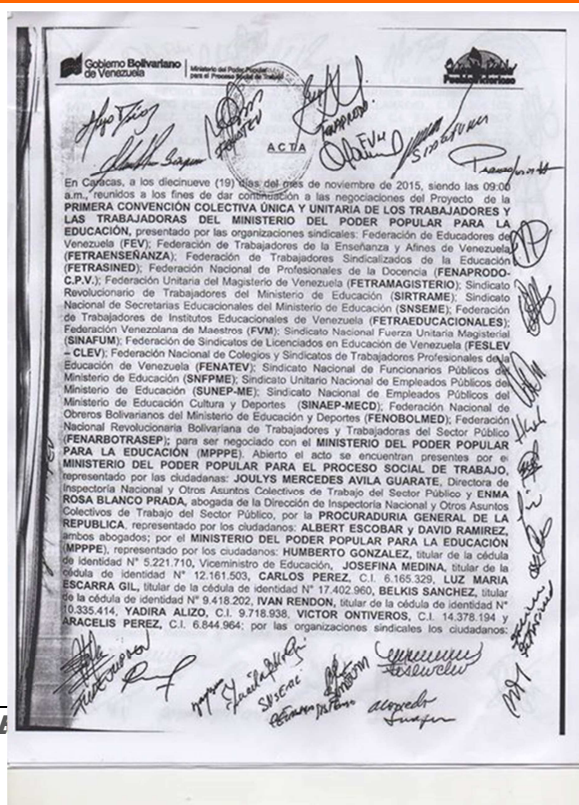 Gobierno Bolivariano
de Venezuela
Ministerio del Poder Popular
para el Proceso Social de Trabajo
ACTA
En Caracas, a los diecinueve (19) días del mes de noviembre de 2015, siendo las 09:00
a.m., reunidos a los fines de dar continuación a las negociaciones del Proyecto de la
PRIMERA CONVENCIÓN COLECTIVA ÚNICA Y UNITARIA DE LOS TRABAJADORES Y
LAS TRABAJADORAS DEL MINISTERIO DEL PODER POPULAR PARA LA
EDUCACIÓN, presentado por las organizaciones sindicales: Federación de Educadores de
Venezuela (FEV); Federación de Trabajadores de la Enseñanza y Afines de Venezuela
(FETRAENSEÑANZA); Federación de Trabajadores Sindicalizados de la Educación
(FETRASINED); Federación Nacional de Profesionales de la Docencia (FENAPRODO-
C.P.V.); Federación Unitaria del Magisterio de Venezuela (FETRAMAGISTERIO); Sindicato
Revolucionario de Trabajadores del Ministerio de Educación (SIRTRAME); Sindicato
Nacional de Secretarias Educacionales del Ministerio de Educación (SNSEME); Federación
de Trabajadores de Institutos Educacionales de Venezuela (FETRAEDUCACIONALES);
Federación Venezolana de Maestros (FVM); Sindicato Nacional Fuerza Unitaria Magisterial
(SINAFUM); Federación de Sindicatos de Licenciados en Educación de Venezuela (FESLEV
– CLEV); Federación Nacional de Colegios y Sindicatos de Trabajadores Profesionales de
Educación de Venezuela (FENATEV); Sindicato Nacional de Funcionarios Públicos de
Ministerio de Educación (SNFPME); Sindicato Unitario Nacional de Empleados Públicos del
Ministerio de Educación (SUNEP-ME); Sindicato Nacional de Empleados Públicos del
Ministerio de Educación Cultura y Deportes (SINAEP-MECD); Federación Nacional de
Obreros Bolivarianos del Ministerio de Educación y Deportes (FENOBOLMED); Federación
Nacional Revolucionaria Bolivariana de Trabajadores y Trabajadoras del Sector Público
(FENARBOTRASEP); para ser negociado con el MINISTERIO DEL PODER POPULAR
PARA LA EDUCACIÓN (MPPPE). Abierto el acto se encuentran presentes por el
MINISTERIO DEL PODER POPULAR PARA EL PROCESO SOCIAL DE TRABAJO,
representado por las ciudadanas: JOULYS MERCEDES AVILA GUARATE, Directora de
Inspectoría Nacional y Otros Asuntos Colectivos de Trabajo del Sector Público y ENMA
ROSA BLANCO PRADA, abogada de la Dirección de Inspectoría Nacional y Otros Asuntos
Colectivos de Trabajo del Sector Público, por la PROCURADURIA GENERAL DE LA
REPUBLICA, representado por los ciudadanos: ALBERT ESCOBAR y DAVID RAMIREZ,
ambos abogados; por el MINISTERIO DEL PODER POPULAR PARA LA EDUCACIÓN
(MPPPE), representado por los ciudadanos: HUMBERTO GONZALEZ, titular de la cédula
de identidad N° 5.221.710, Viceministro de Educación, JOSEFINA MEDINA, titular de la
cédula de identidad N° 12.161.503, CARLOS PEREZ, C.I. 6.165.329, LUZ MARIA
ESCARRA GIL, titular de la cédula de identidad N° 17.402.960, BELKIS SANCHEZ, titular
de la cédula de identidad N° 9.418.202, IVAN RENDON, titular de la cédula de identidad N°
10.335.414, YADIRA ALIZO, C.I. 9.718.938, VICTOR ONTIVEROS, C.I. 14.378.194 y
ARACELIS PEREZ, C.I. 6.844.964; por las organizaciones sindicales los ciudadanos: